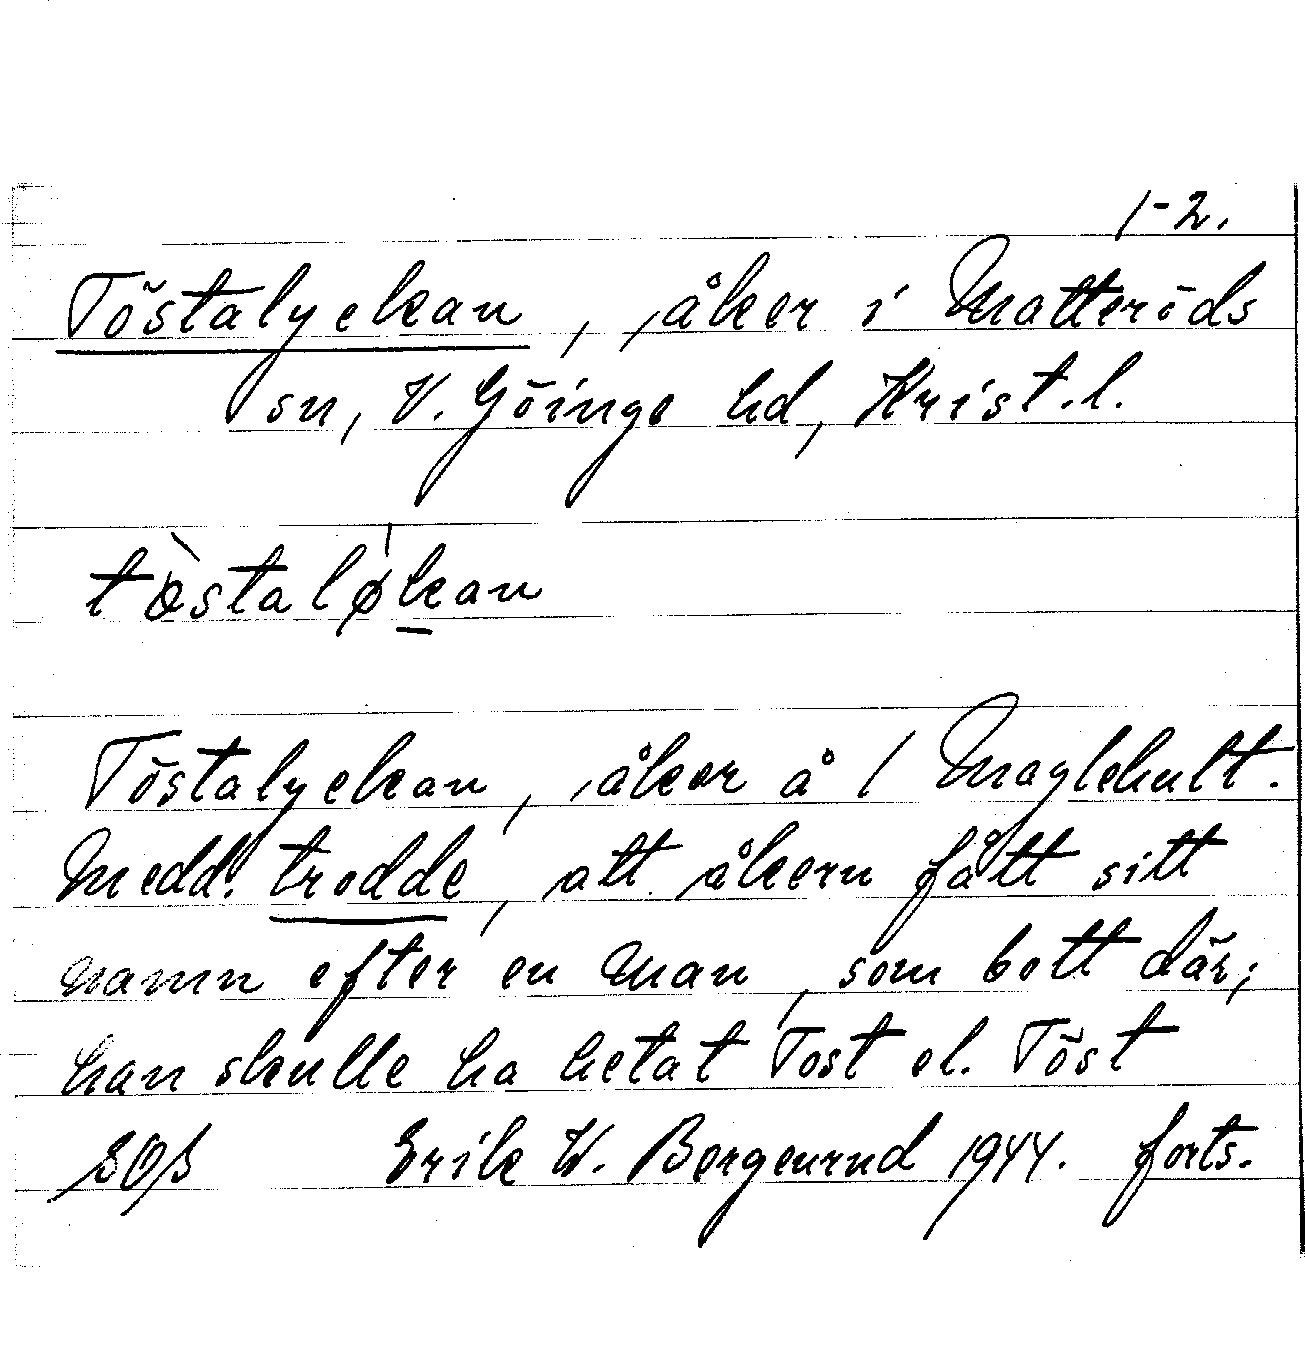 1-2.
Töstalyckan, åker i Matteröds
sn, V. Göinge hd, Krist. l.
tøstaløkan
Töstalyckan, åker å 1 Maglehult.
Medd. trodde, att åkern fått sitt
namn efter en man, som bott där;
han skulle ha hetat Tost el. Töst
SOS Erik W. Bergeurud 1944. forts.